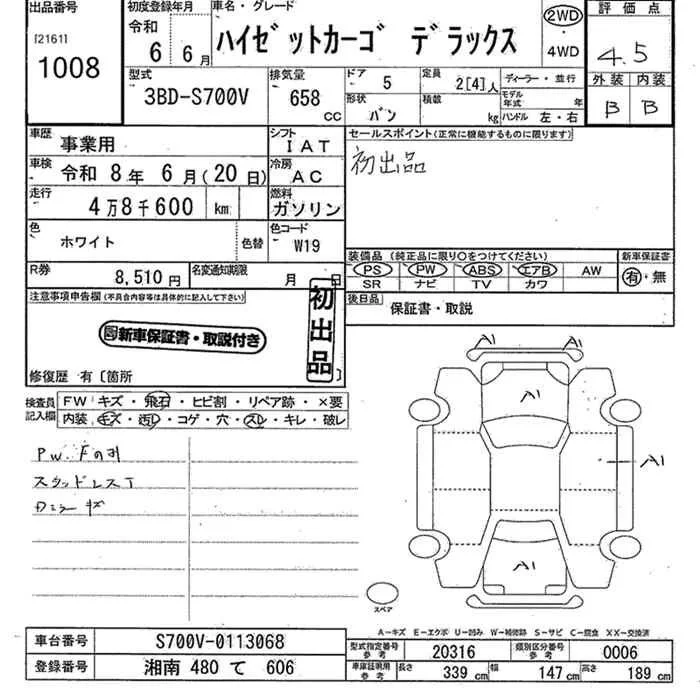 出品番号 初度登録年月 車名・グレード 評価点
[2161] 令和 ハイゼットカーゴ デラックス 2WD
1008 6年 6月 ・ 4WD 4.5
型式 排気量 ドア 5 定員 2[4]人 ディーラー・並行 外装 内装
3BD-S700V 658 CC 形状 バン 積載 kg モデル年式 年 B B
ハンドル 左・右
車歴 事業用 シフト IAT セールスポイント(正常に機能するものに限ります)
車検 令和 8年 6月(20日) 冷房 AC 初出品
走行 4万8千600 km 燃料 ガソリン
色 ホワイト 色替 色コード W19
装備品 (純正品に限り○をつけてください) 新車保証書
PS PW ABS エアB AW 有・無
SR ナビ TV カワ
R券 8,510円 名変通知期限 月 日
後日品 保証書・取説
注意事項申告欄(不具合内容等は具体的に記入して下さい) 初出品
新車保証書・取説付き
修復歴 有〔箇所 〕
検査員記入欄 FW キズ・飛石・ヒビ割・リペア跡・×要
内装 キズ・汚レ・コゲ・穴・スレ・キレ・破レ
PW.Fのみ
スタッドレスT
Dミラーキズ
A1 A1
A1
A1
A1
スペア
A-キズ E-エクボ U-凹ミ W-補修跡 S-サビ C-腐食 XX-交換済
車台番号 S700V-0113068
登録番号 湘南 480 て 606
型式指定番号 参考 20316 類別区分番号 参考 0006
車庫証明用 参考 長さ 339 cm 幅 147 cm 高さ 189 cm